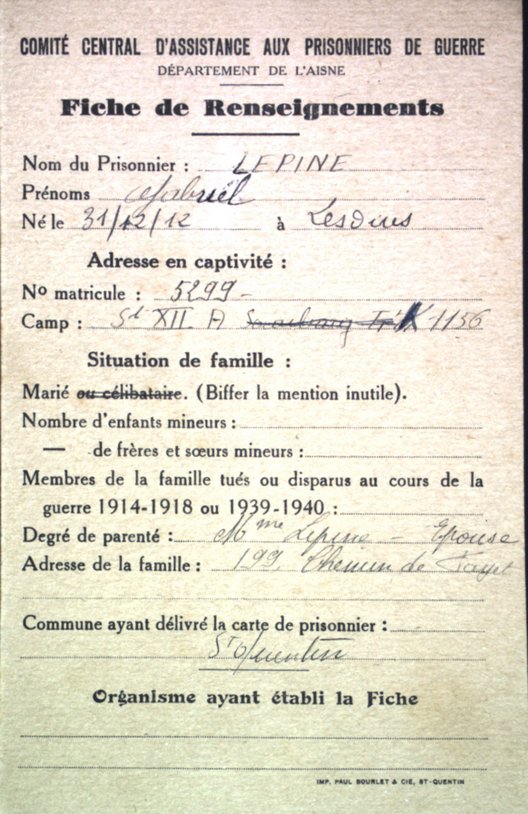 COMITÉ CENTRAL D'ASSISTANCE AUX PRISONNIERS DE GUERRE
DÉPARTEMENT DE L'AISNE
Fiche de Renseignements
Nom du Prisonnier : LEPINE
Prénoms Gabriel
Né le 31/12/12 à Lesdins
Adresse en captivité :
No matricule : 5299 -
Camp : St XII A K 1136
Situation de famille :
Marié ou célibataire. (Biffer la mention inutile).
Nombre d'enfants mineurs :
— de frères et sœurs mineurs :
Membres de la famille tués ou disparus au cours de la
guerre 1914-1918 ou 1939-1940 :
Degré de parenté : Mme Lepine - Epouse
Adresse de la famille : 199, Chemin de Fayet
Commune ayant délivré la carte de prisonnier :
St Quentin
Organisme ayant établi la Fiche
IMP. PAUL BOURLET & CIE, ST-QUENTIN